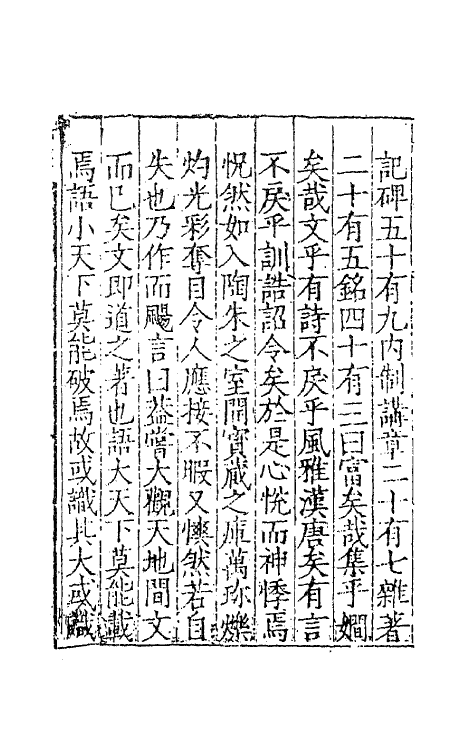 記碑五十有九内制講章二十有七雜著
二十有五銘四十有三曰富矣哉集乎嫺
矣哉文乎有詩不戾乎風雅漢唐矣有言
不戾乎訓誥詔令矣於是心恱而神悸焉
怳然如入陶朱之室開寳蔵之庫萬珎爍
灼光彩奪目令人應接不暇又爽然若自
失也乃作而颺言曰葢嘗大觀天地間文
而已矣文即道之著也語大天下莫能載
焉語小天下莫能破焉故或識其大或識